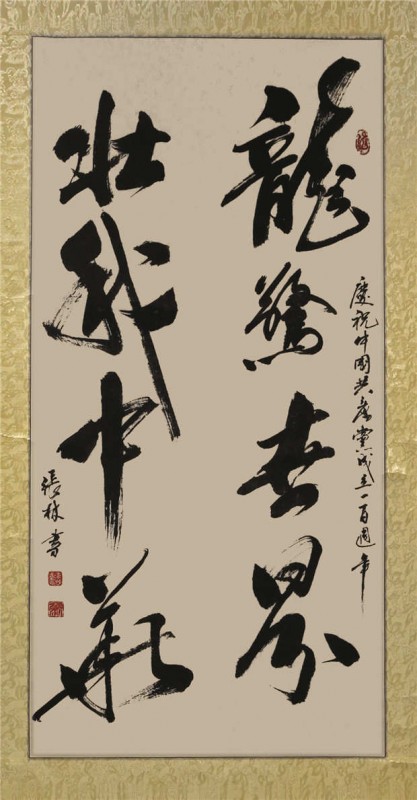 慶祝中國共產黨成立一百週年
龍驚世界
壯我中華
張林書